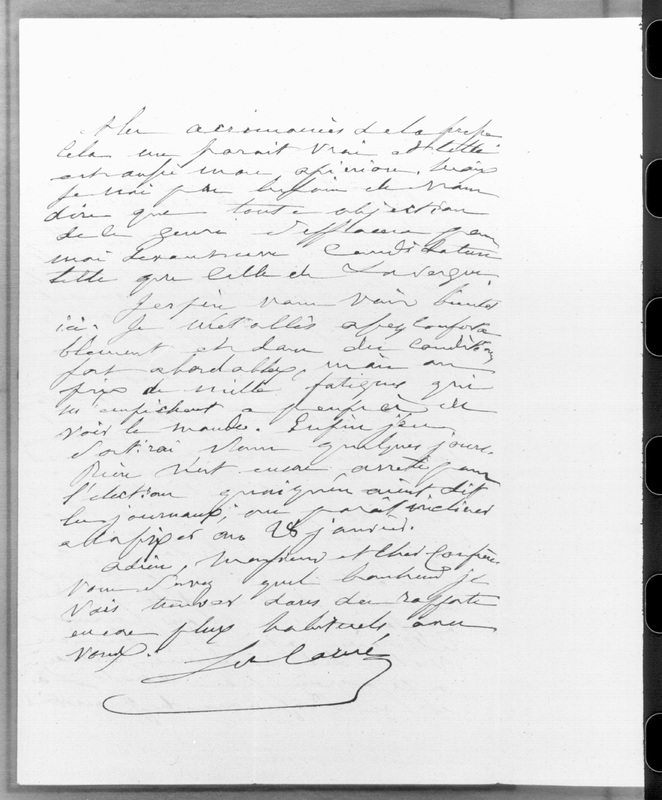 de la presse
Cela me parait vrai et telle
est aussi mon opinion. Mais
je n'ai pas besoin de vous
dire que toute objection
de ce genre s'effacera pour
moi devant une Candidature
telle que celle de Lavergne.
J'espère vous voir bientot
ici. Je m'établis assez conforta
blement et dans des conditions
fort abordables, mais au
prix de mille fatigues qui
m'empêchent à peu près de
voir le monde. Enfin j'en
sortirai dans quelques jours.
Rien n'est encore arrêté pour
l'élection quoiqu'en aient dit
les journaux; on parait incliner
à la fixer au 28 janvier.
Adieu, Monsieur et Cher Confrère
vous savez quel bonheur je
vais trouver dans des rapports
encore plus habituels avec
vous.
L. de Carné